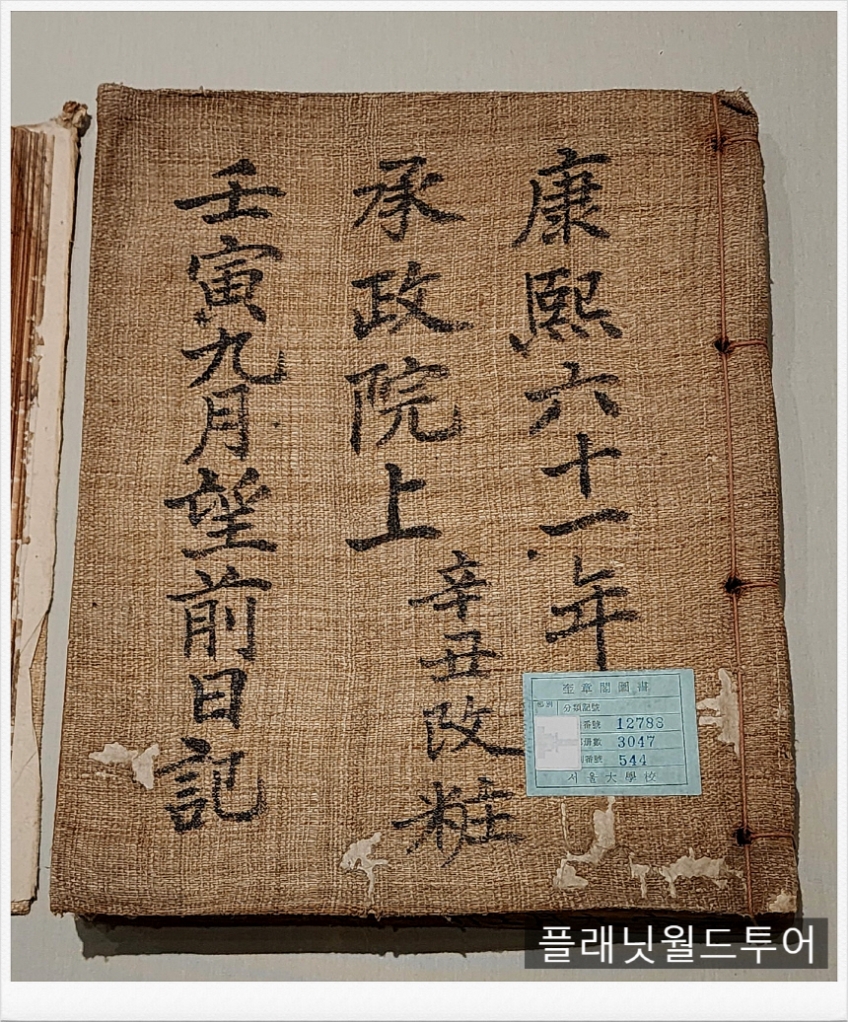 康熙六十一年
承政院上
辛丑改粧
壬寅九月望前日記
奎章閣圖書
分類記號
番號 12788
冊數 3047
番號 544
서울大學校
플래닛월드투어